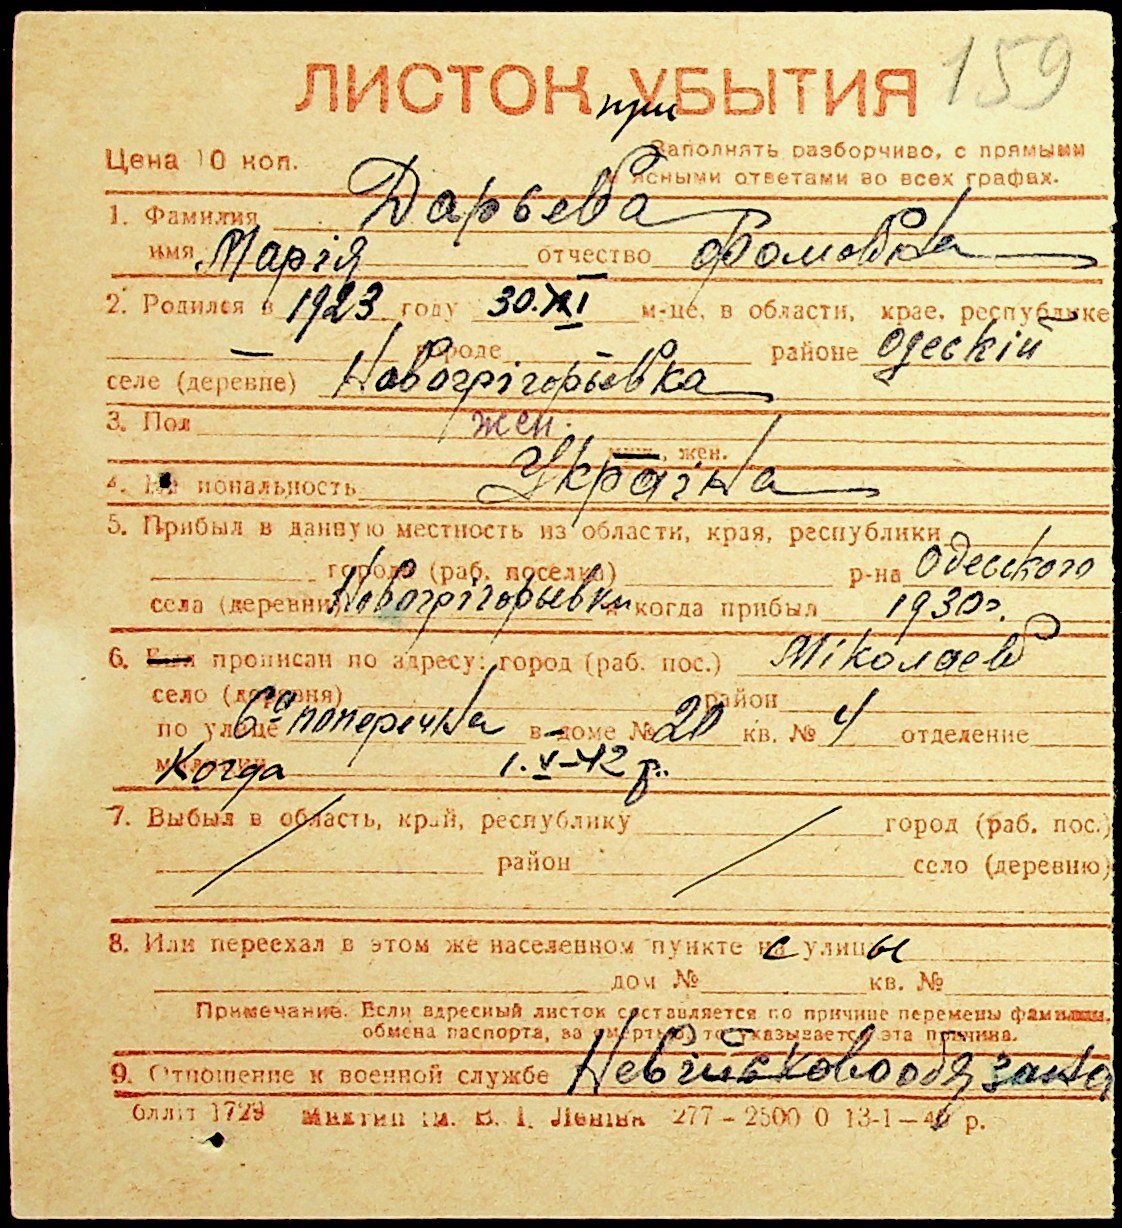 159
ЛИСТОК при УБЫТИЯ
Цена 10 коп.
Заполнять разборчиво, с прямыми
и ясными ответами во всех графах.
1. Фамилия Дарьева
имя Марія отчество Фомовна
2. Родился в 1923 году 30.XI м-це, в области, крае, республике
— городе — районе Одескій
селе (деревне) Новогрігорьевка
3. Пол жен.
муж., жен.
4. Национальность Україна
5. Прибыл в данную местность из области, края, республики
города (раб. поселка) р-на Одесского
села (деревни) Новогрігорьевки и когда прибыл 1930г.
6. Был прописан по адресу: город (раб. пос.) Міколаев
село (деревня) район
по улице 6ая поперечна в доме № 20 кв. № 4 отделение
милиции Когда 1.V-42 р.
7. Выбыл в область, край, республику город (раб. пос.)
район село (деревню)
8. Или переехал в этом же населенном пункте с улицы
дом № кв. №
Примечание. Если адресный листок составляется по причине перемены фамилии,
обмена паспорта, за смертью, то указывается эта причина.
9. Отношение к военной службе Невійсковообязана
1729 ім. В. І. Леніна 277 – 2500 0 13-1–4 р.